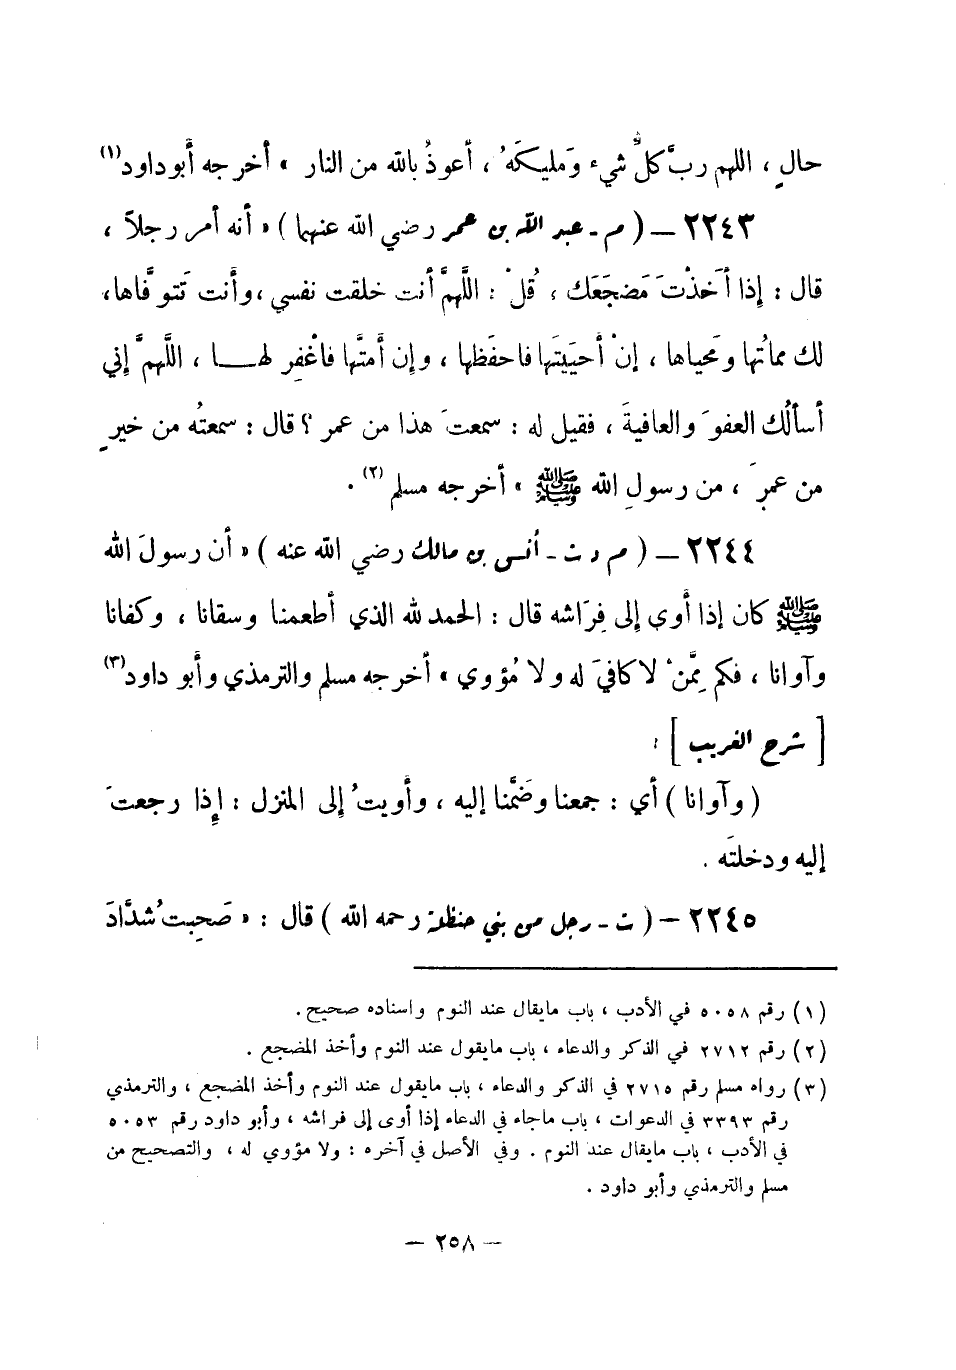 حالٍ ، اللهم ربَّ كلِّ شيء وَمليكَهُ ، أعوذُ بالله من النار » أخرجه أبو داود (١)
٢٢٤٣ – ( م - عبد الله بن عمر رضي الله عنهما ) « أنه أمر رجلاً ،
قال : إذا أخذْتَ مَضجَعَك ، قُلْ : اللَّهمَّ أنت خلقت نفسي ، وأنت تَتوفَّاها ،
لك مماتُها ومَحياها ، إنْ أحيَيتَها فاحفَظها ، وإن أمتَّها فاغْفِر لهـــا ، اللَّهمَّ إني
أسألُك العفوَ والعافيةَ ، فقيل له : سمعتَ هذا من عمر ؟ قال : سمعتُه من خيرٍ
من عمرَ ، من رسولِ الله ﷺ » أخرجه مسلم (٢) .
٢٢٤٤ – ( م د ت - أنس بن مالك رضي الله عنه ) « أن رسولَ الله
ﷺ كان إذا أوى إلى فِرَاشه قال : الحمد لله الذي أطعمنا وسقانا ، وكفانا
وآوانا ، فكم مِمَّنْ لا كافيَ له ولا مُؤوي » أخرجه مسلم والترمذي وأبو داود (٣)
[ شرح الغريب ] :
( وآوانا ) أي : جمعنا وضَمَّنا إليه ، وأويتُ إلى المنزل : إذا رجعتَ
إليه ودخلتَه .
٢٢٤٥ – ( ت - رجل من بني حنظلة رحمه الله ) قال : « صَحِبتُ شدَّادَ
(١) رقم ٥٠٥٨ في الأدب ، باب مايقال عند النوم واسناده صحيح .
(٢) رقم ٢٧١٢ في الذكر والدعاء ، باب مايقول عند النوم وأخذ المضجع .
(٣) رواه مسلم رقم ٢٧١٥ في الذكر والدعاء ، باب مايقول عند النوم وأخذ المضجع ، والترمذي
رقم ٣٣٩٣ في الدعوات ، باب ماجاء في الدعاء إذا أوى إلى فراشه ، وأبو داود رقم ٥٠٥٣
في الأدب ، باب مايقال عند النوم . وفي الأصل في آخره : ولا مؤوي له ، والتصحيح من
مسلم والترمذي وأبو داود .
– ٢٥٨ –